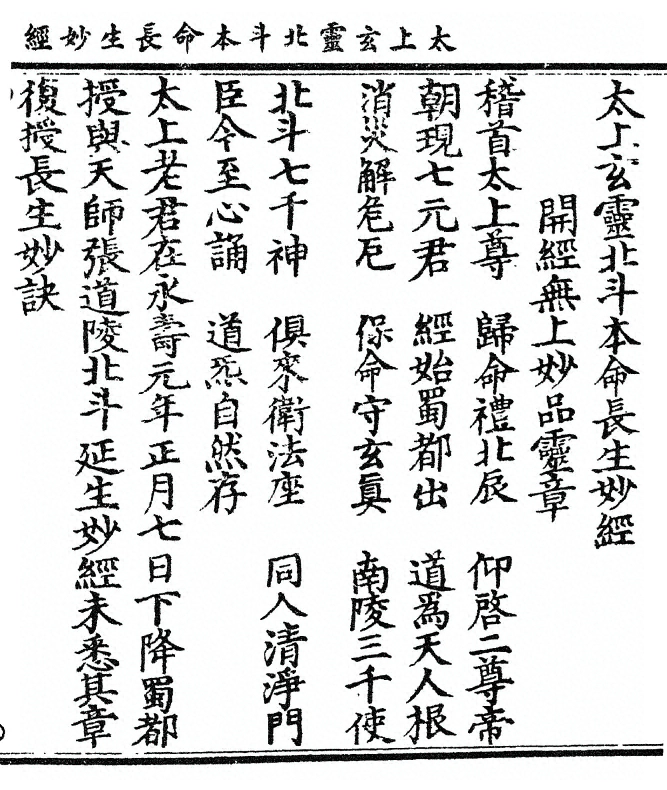 太上玄靈北斗本命長生妙經
太上玄靈北斗本命長生妙經
開經無上妙品靈章
稽首太上尊 歸命禮北辰 仰啓二尊帝
朝現七元君 經始蜀都出 道為天人根
消災解危厄 保命守玄眞 南陵三千使
北斗七千神 俱來衛法座 同入清淨門
臣今至心誦 道炁自然存
太上老君在永壽元年正月七日下降蜀都
授與天師張道陵北斗延生妙經未悉其章
復授長生妙訣